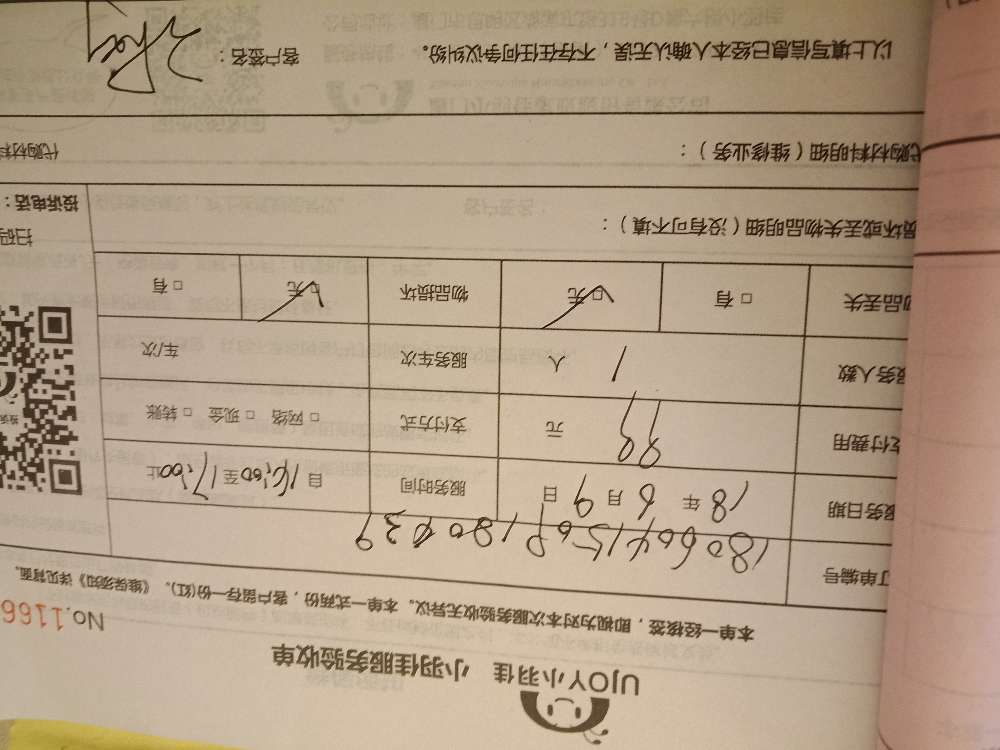 UJOY小羽佳 小羽佳服务验收单
No.1166
本单一经核签,即视为对本次服务验收无异议。本单一式两份,客户留存一份(红)。《维保须知》详见背面。
订单编号
服务日期 18 年 6 月 9 日 服务时间 自 16:00 至 17:00 止
支付费用 99 元 支付方式 □ 网络 □ 现金 □ 转账
服务人数 1 人 服务车次 车/次
物品丢失 □ 有 □ 无 物品损坏 □ 无 □ 有
损坏或丢失物品明细(没有可不填):
扫码
投诉电话:
代购材料明细(维修业务): 代购材料
以上填写信息已经本人确认无误,不存在任何争议纠纷。 客户签名: